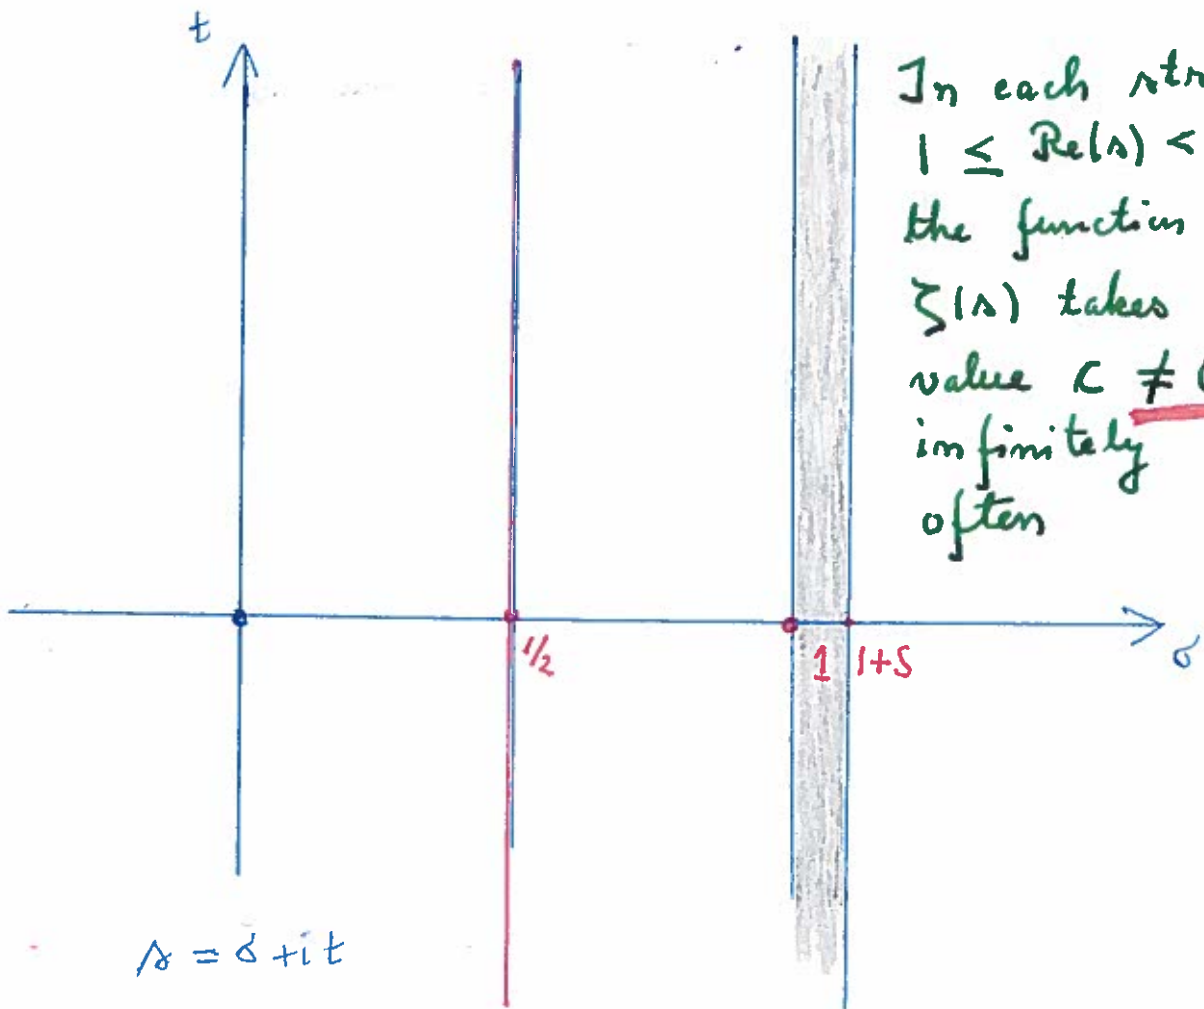 t
In each
1 ≤ Re(s) <
the function
ζ(s) takes
value c ≠
infinitely
often
1/2
1
1+δ
σ
s = σ + it